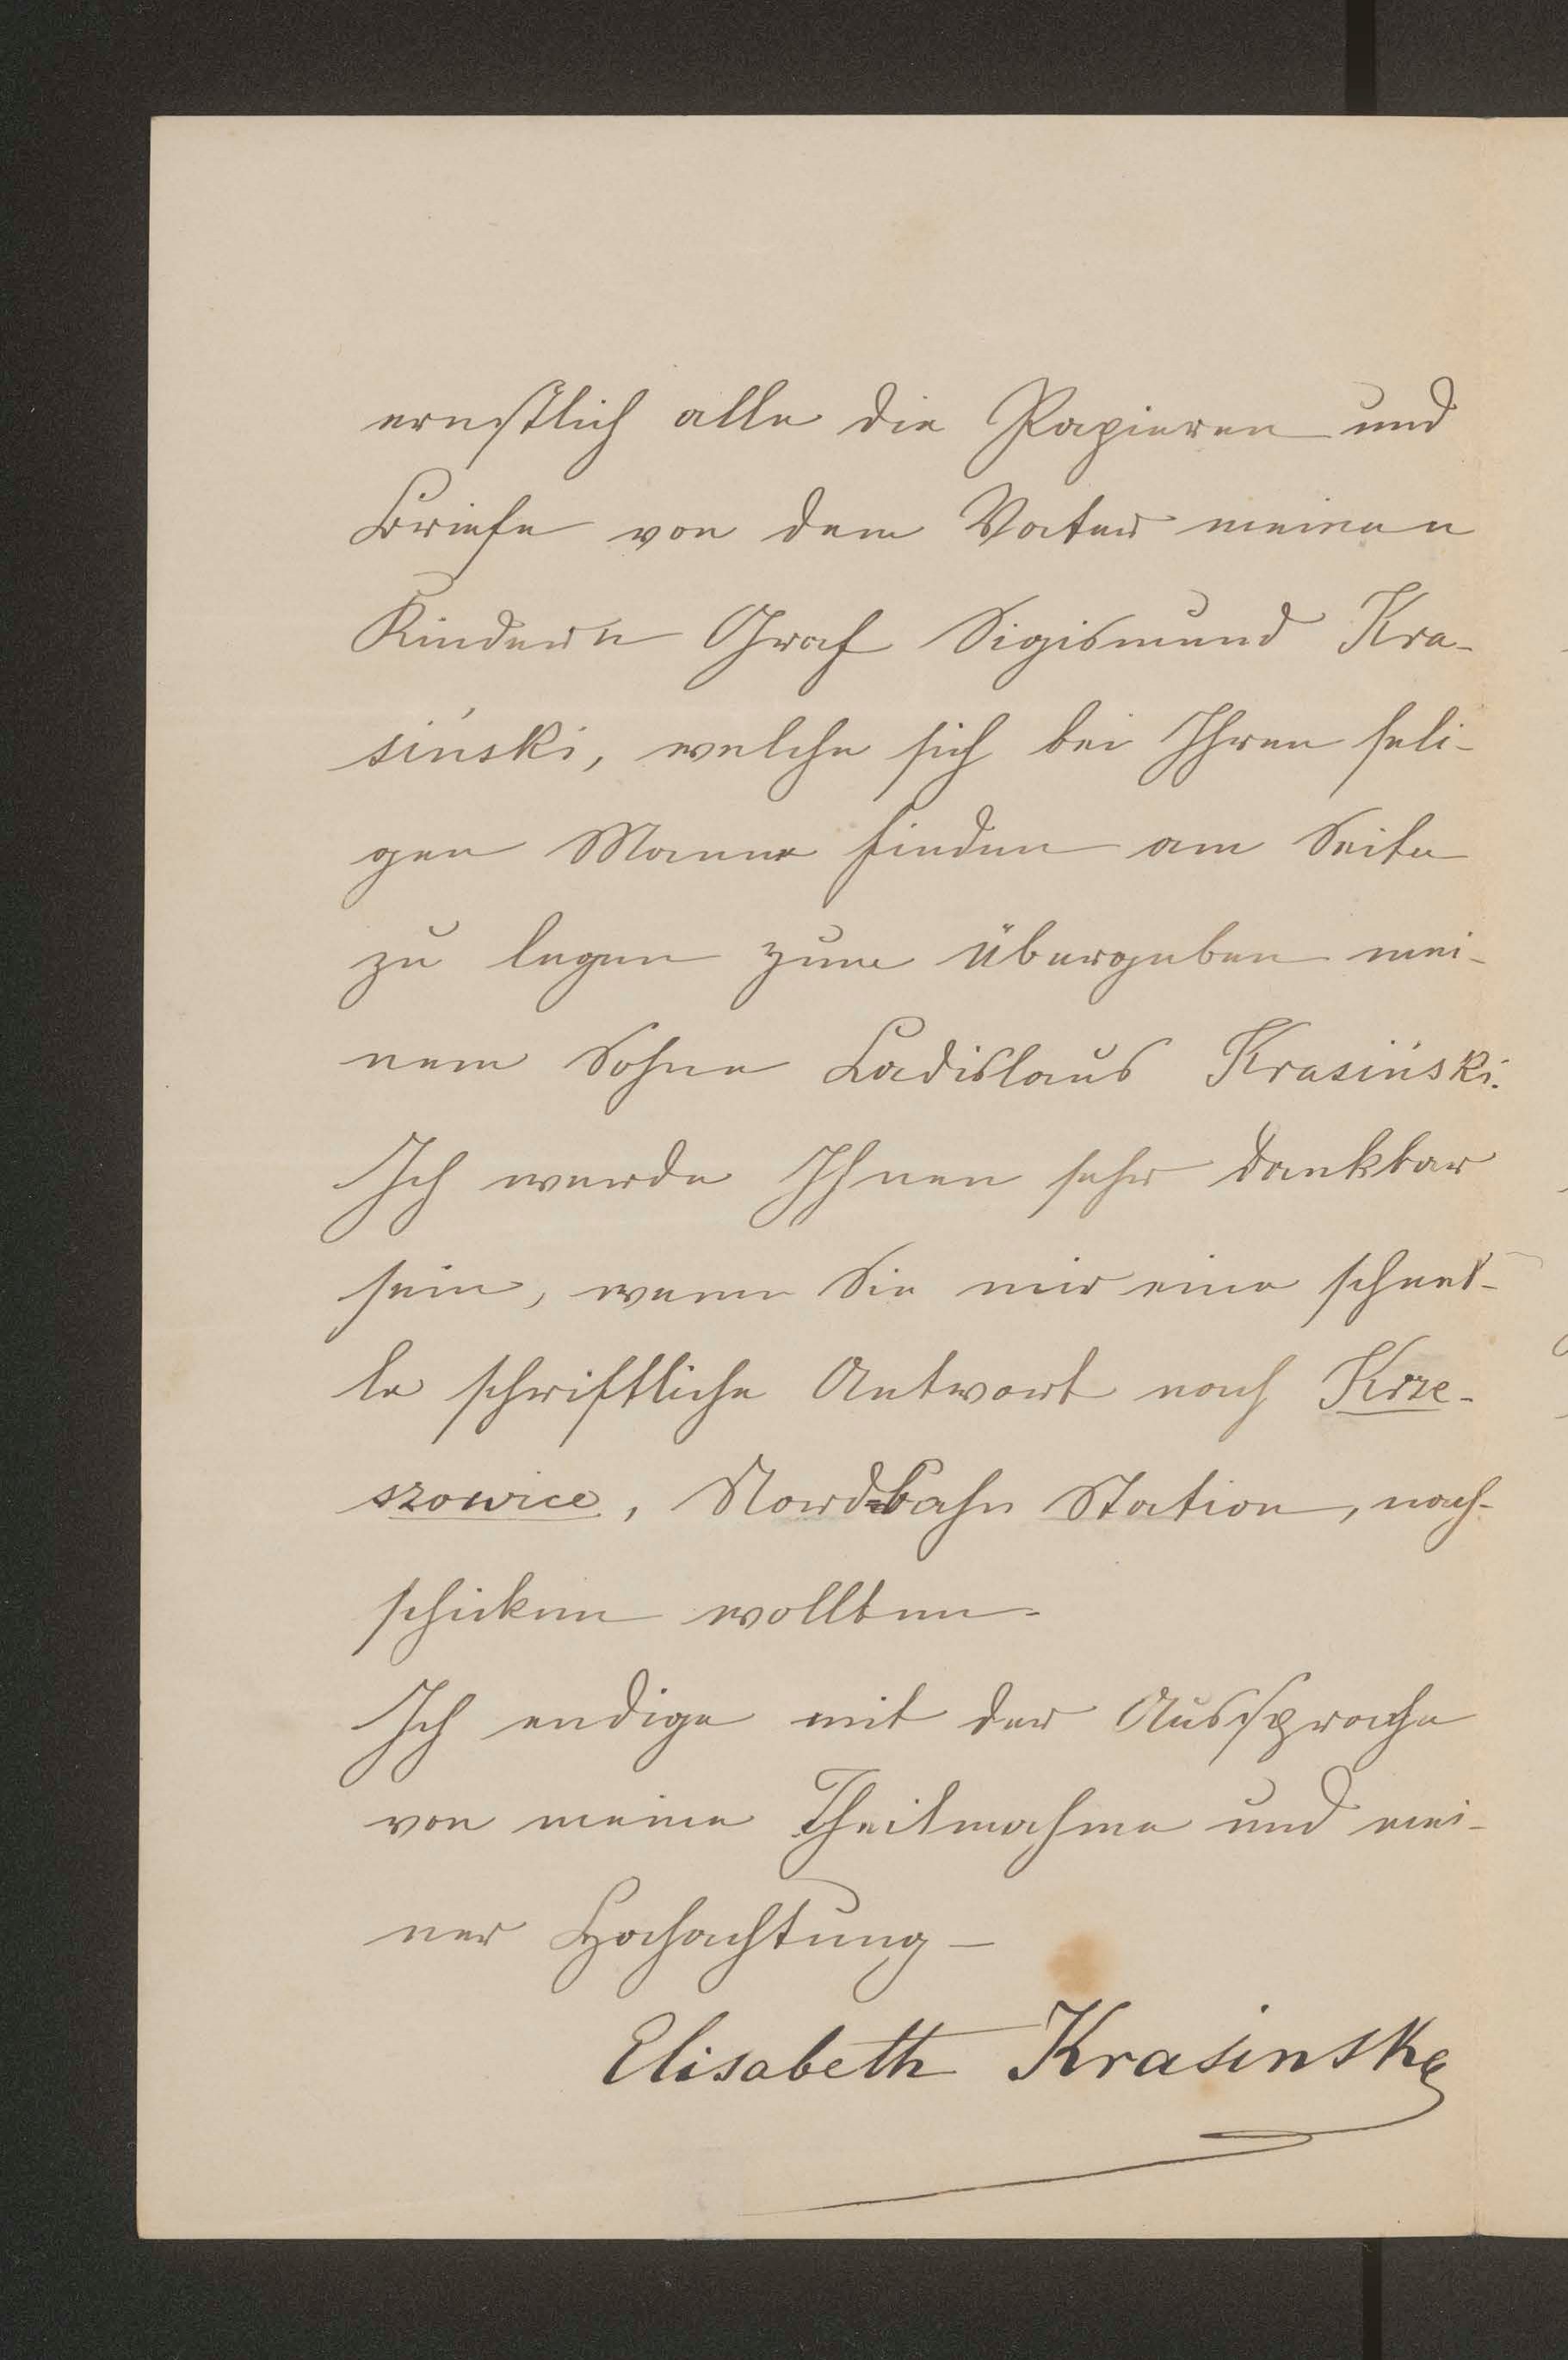 ernstlich alle die Papieren und
Briefe von dem Vater meinen
Kindern Graf Sigismund Kra-
siński, welche sich bei Ihren seli-
gen Manne finden am Seite
zu legen zum übergeben mei-
nem Sohne Ladislaus Krasiński.
Ich werde Ihnen sehr dankbar
sein, wenn Sie mir eine schnel-
le schriftliche Antwort nach Krze-
szowice, Nord=bahn Station, nach-
schicken wollten.
Ich endige mit der Aussprache
von meine Theilnahme und mei-
ner Hochachtung —
Elisabeth Krasinska